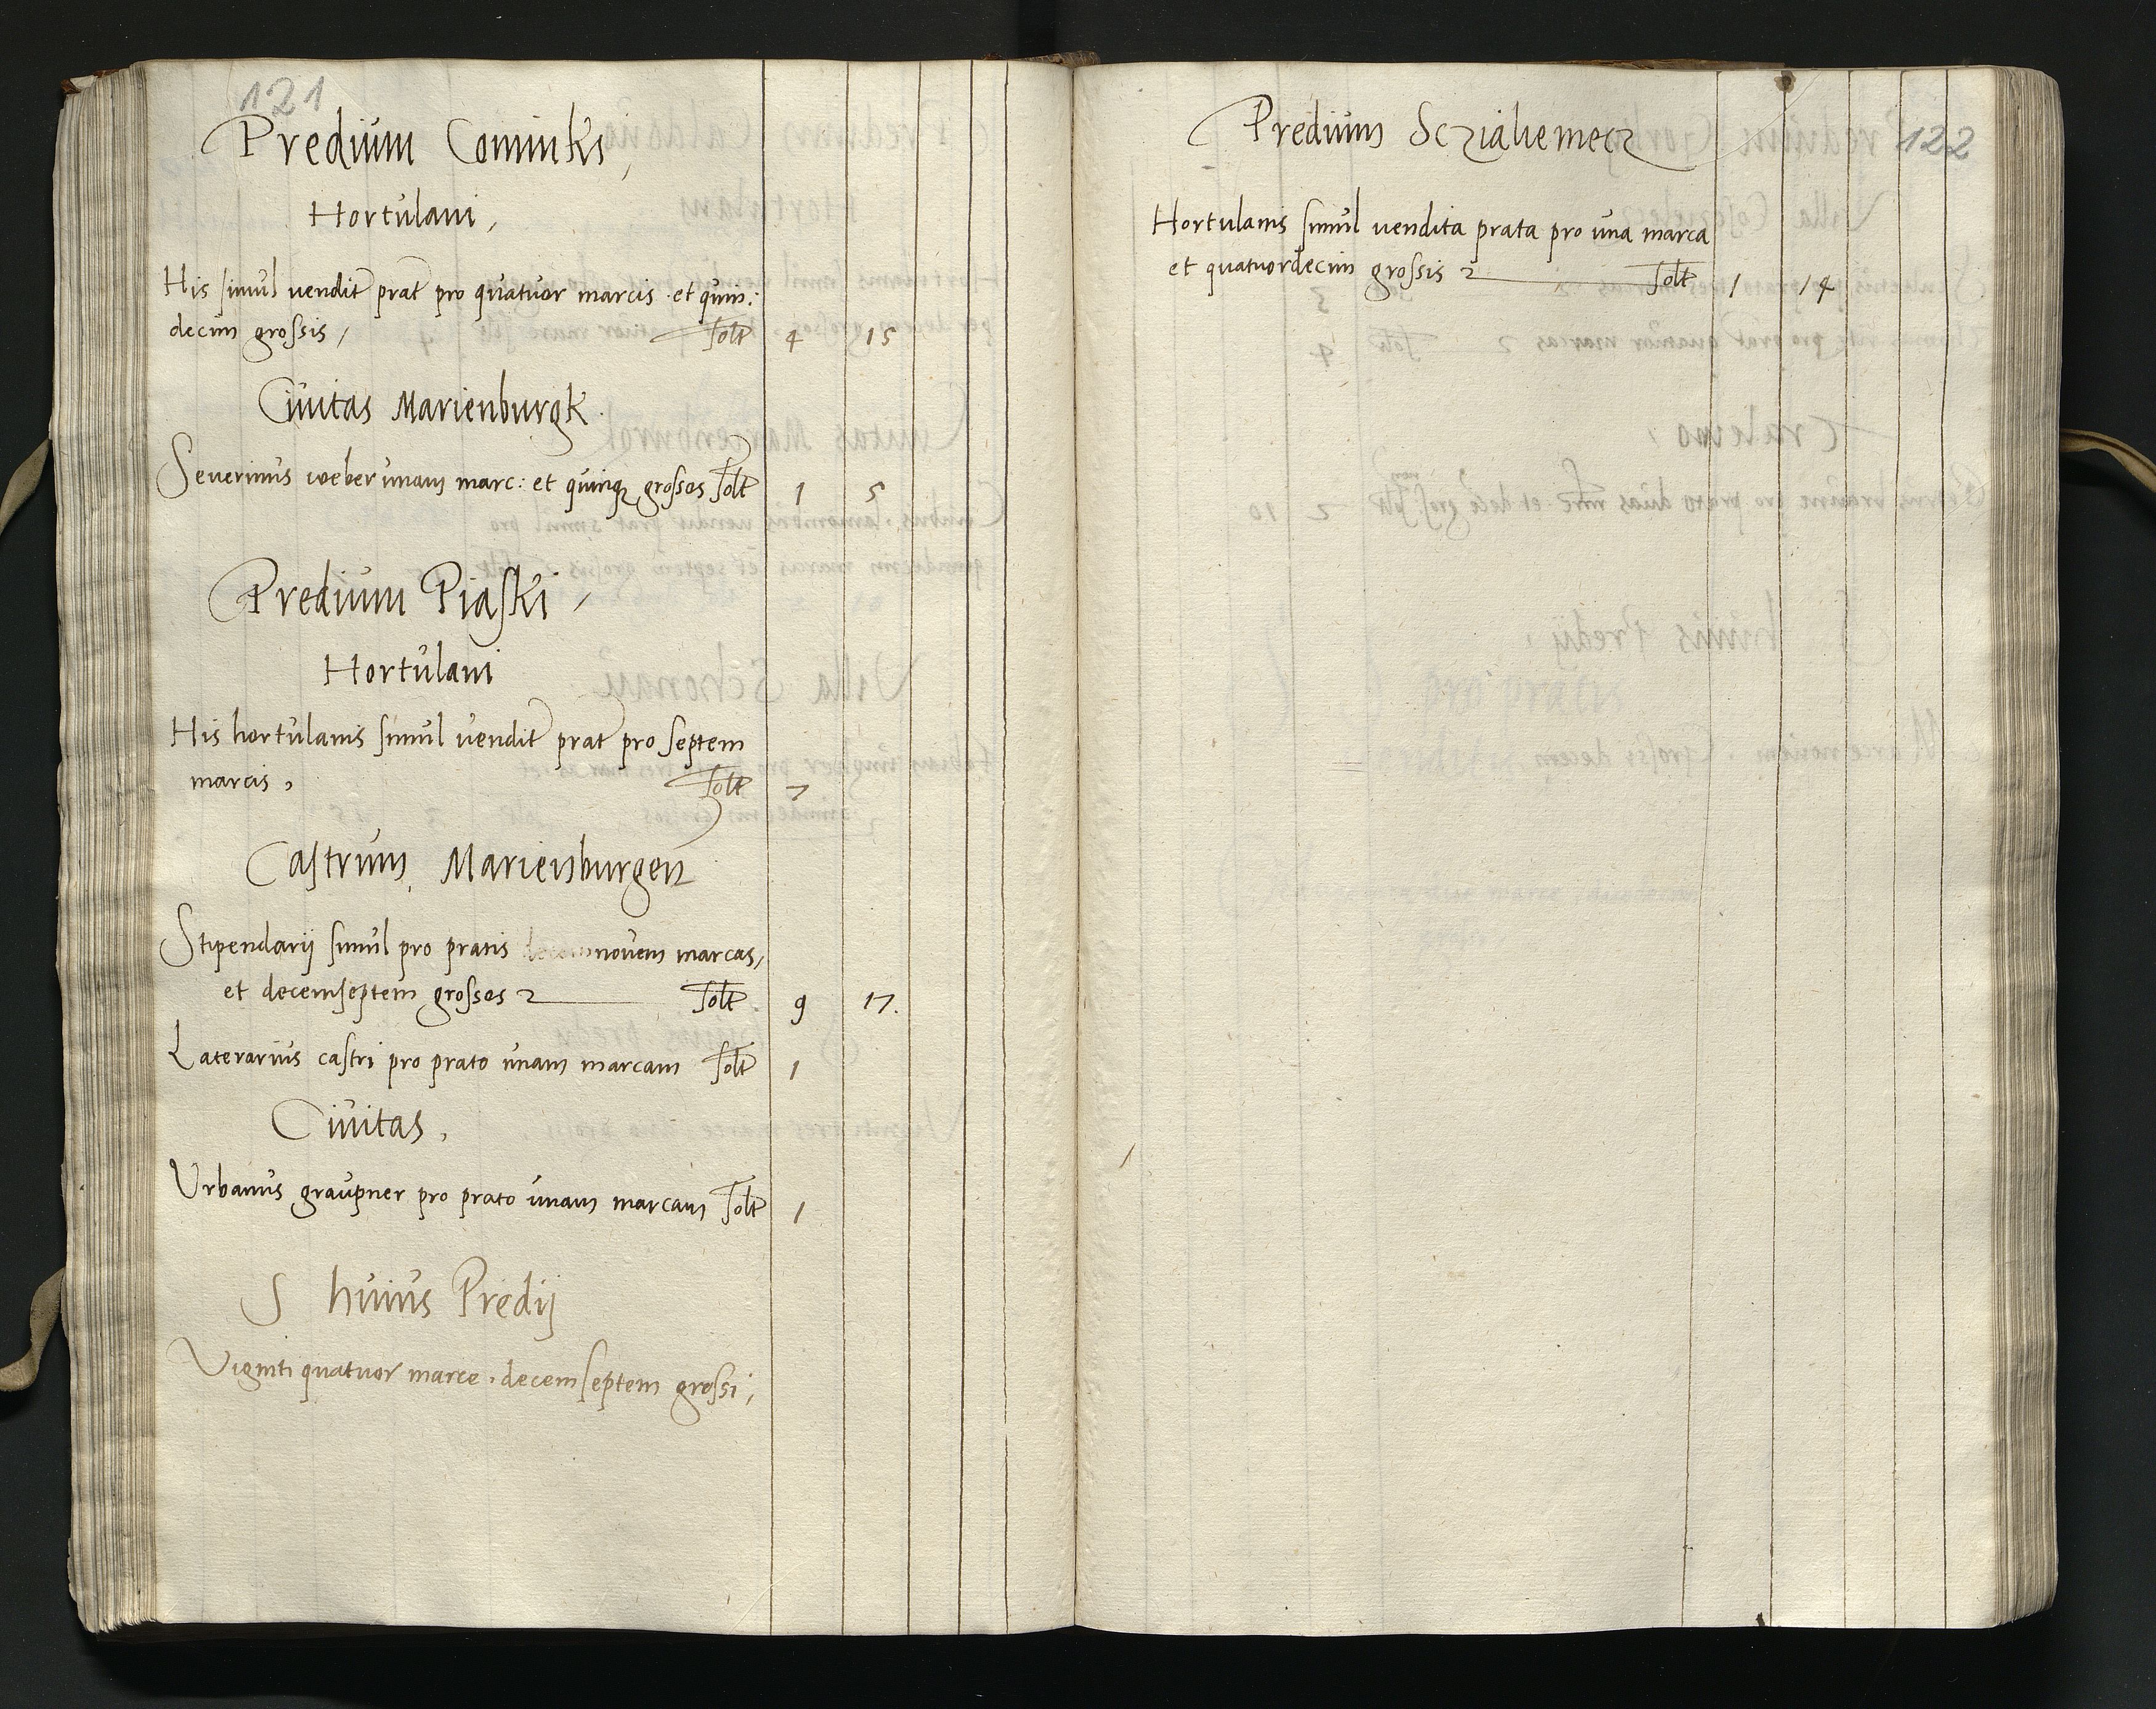 121
Predium Cominki,
Hortulani,
His simul vendit prat pro quatuor marcis et quin:
decim grossis, solt 4 15
Civitas Marienburgk
Severinus weber unam marc: et quinq grosses solt 1 5
Predium Piaski,
Hortulani
His hortulanis simul vendit prat pro septem
marcis, solt 7
Castrum Marienburgen
Stipendarij simul pro pratis novem marcas,
et decemseptem grosses solt 9 17.
Laterarius castri pro prato unam marcam solt 1
Civitas,
Urbanus graupner pro prato unam marcam solt 1
S huius Predij
Viginti quatuor marce. decemseptem grossi,
122
Predium Sczialiemecz
Hortulanis simul vendita prata pro una marca
et quatuordecim grossis solt 1 14